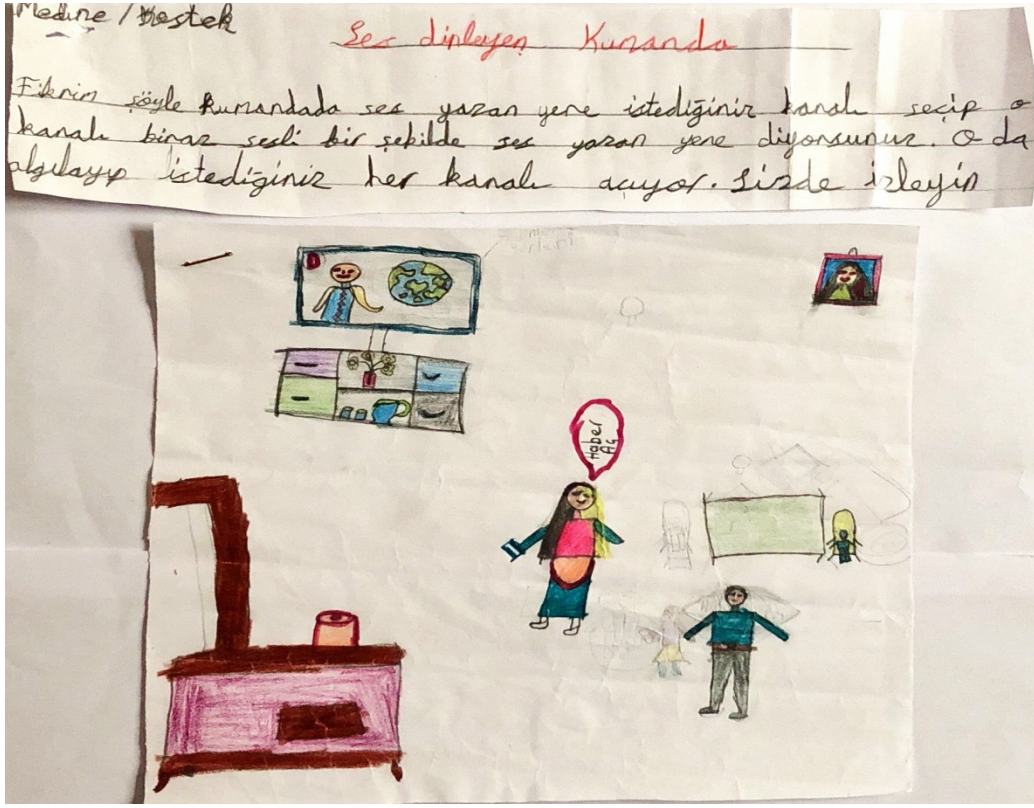 Medine / Destek
Ses dinleyen Kumanda
Fikrim şöyle kumandada ses yazan yere istediğiniz kanalı seçip o
kanalı biraz sesli bir şekilde ses yazan yere diyorsunuz. O da
algılayıp istediğiniz her kanalı açıyor. Sizde izleyin
D
Haber
Aç